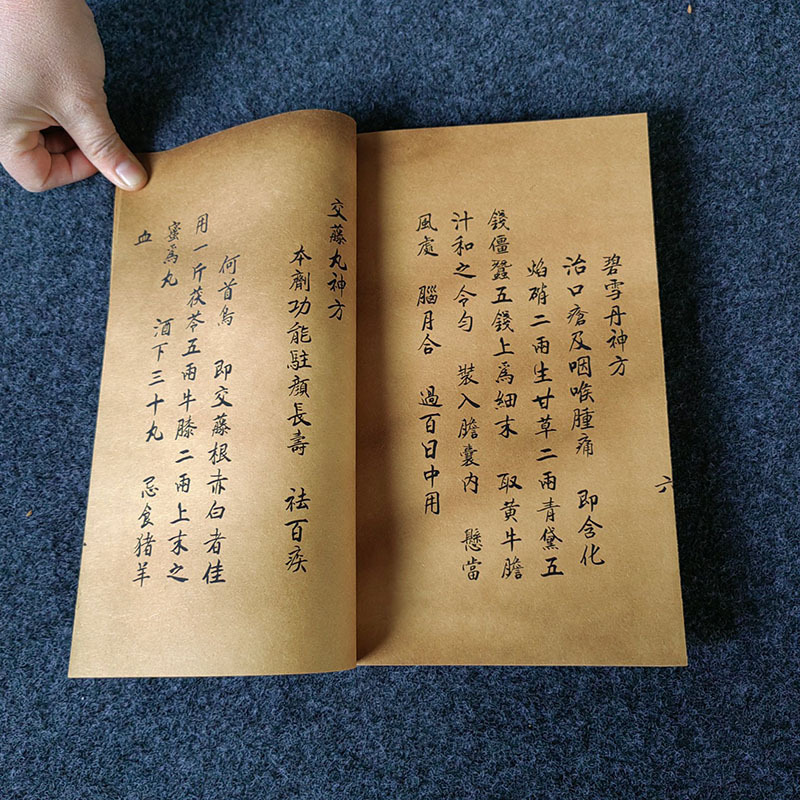 碧雪丹神方
治口瘡及咽喉腫痛 即含化
焰硝二兩生甘草二兩青黛五
錢僵蠶五錢上為細末 取黄牛膽
汁和之令匀 裝入膽囊内 懸當
風處 腦月合 過百日中用
六
交藤丸神方
本劑功能駐顔長壽 祛百疾
何首烏 即交藤根赤白者佳
用一斤茯苓五兩牛膝二兩上末之
蜜爲丸 酒下三十丸 忌食猪羊
血